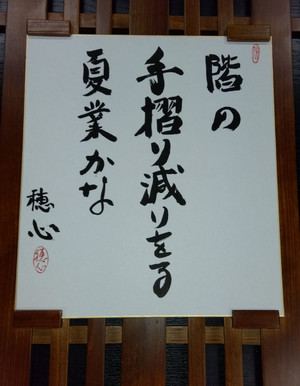 階の
手摺り減りをる
夏業かな
穂心